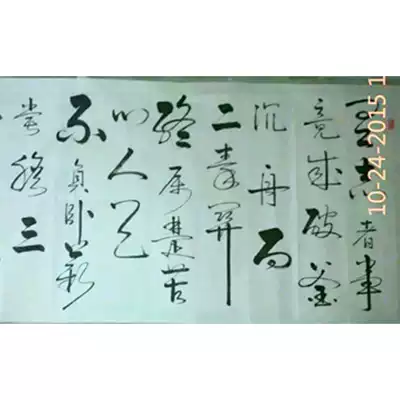 有志者事
竟成破釜
沉舟百
二秦关
终属楚苦
心人天
不負卧薪
尝胆三
10-24-2015 1